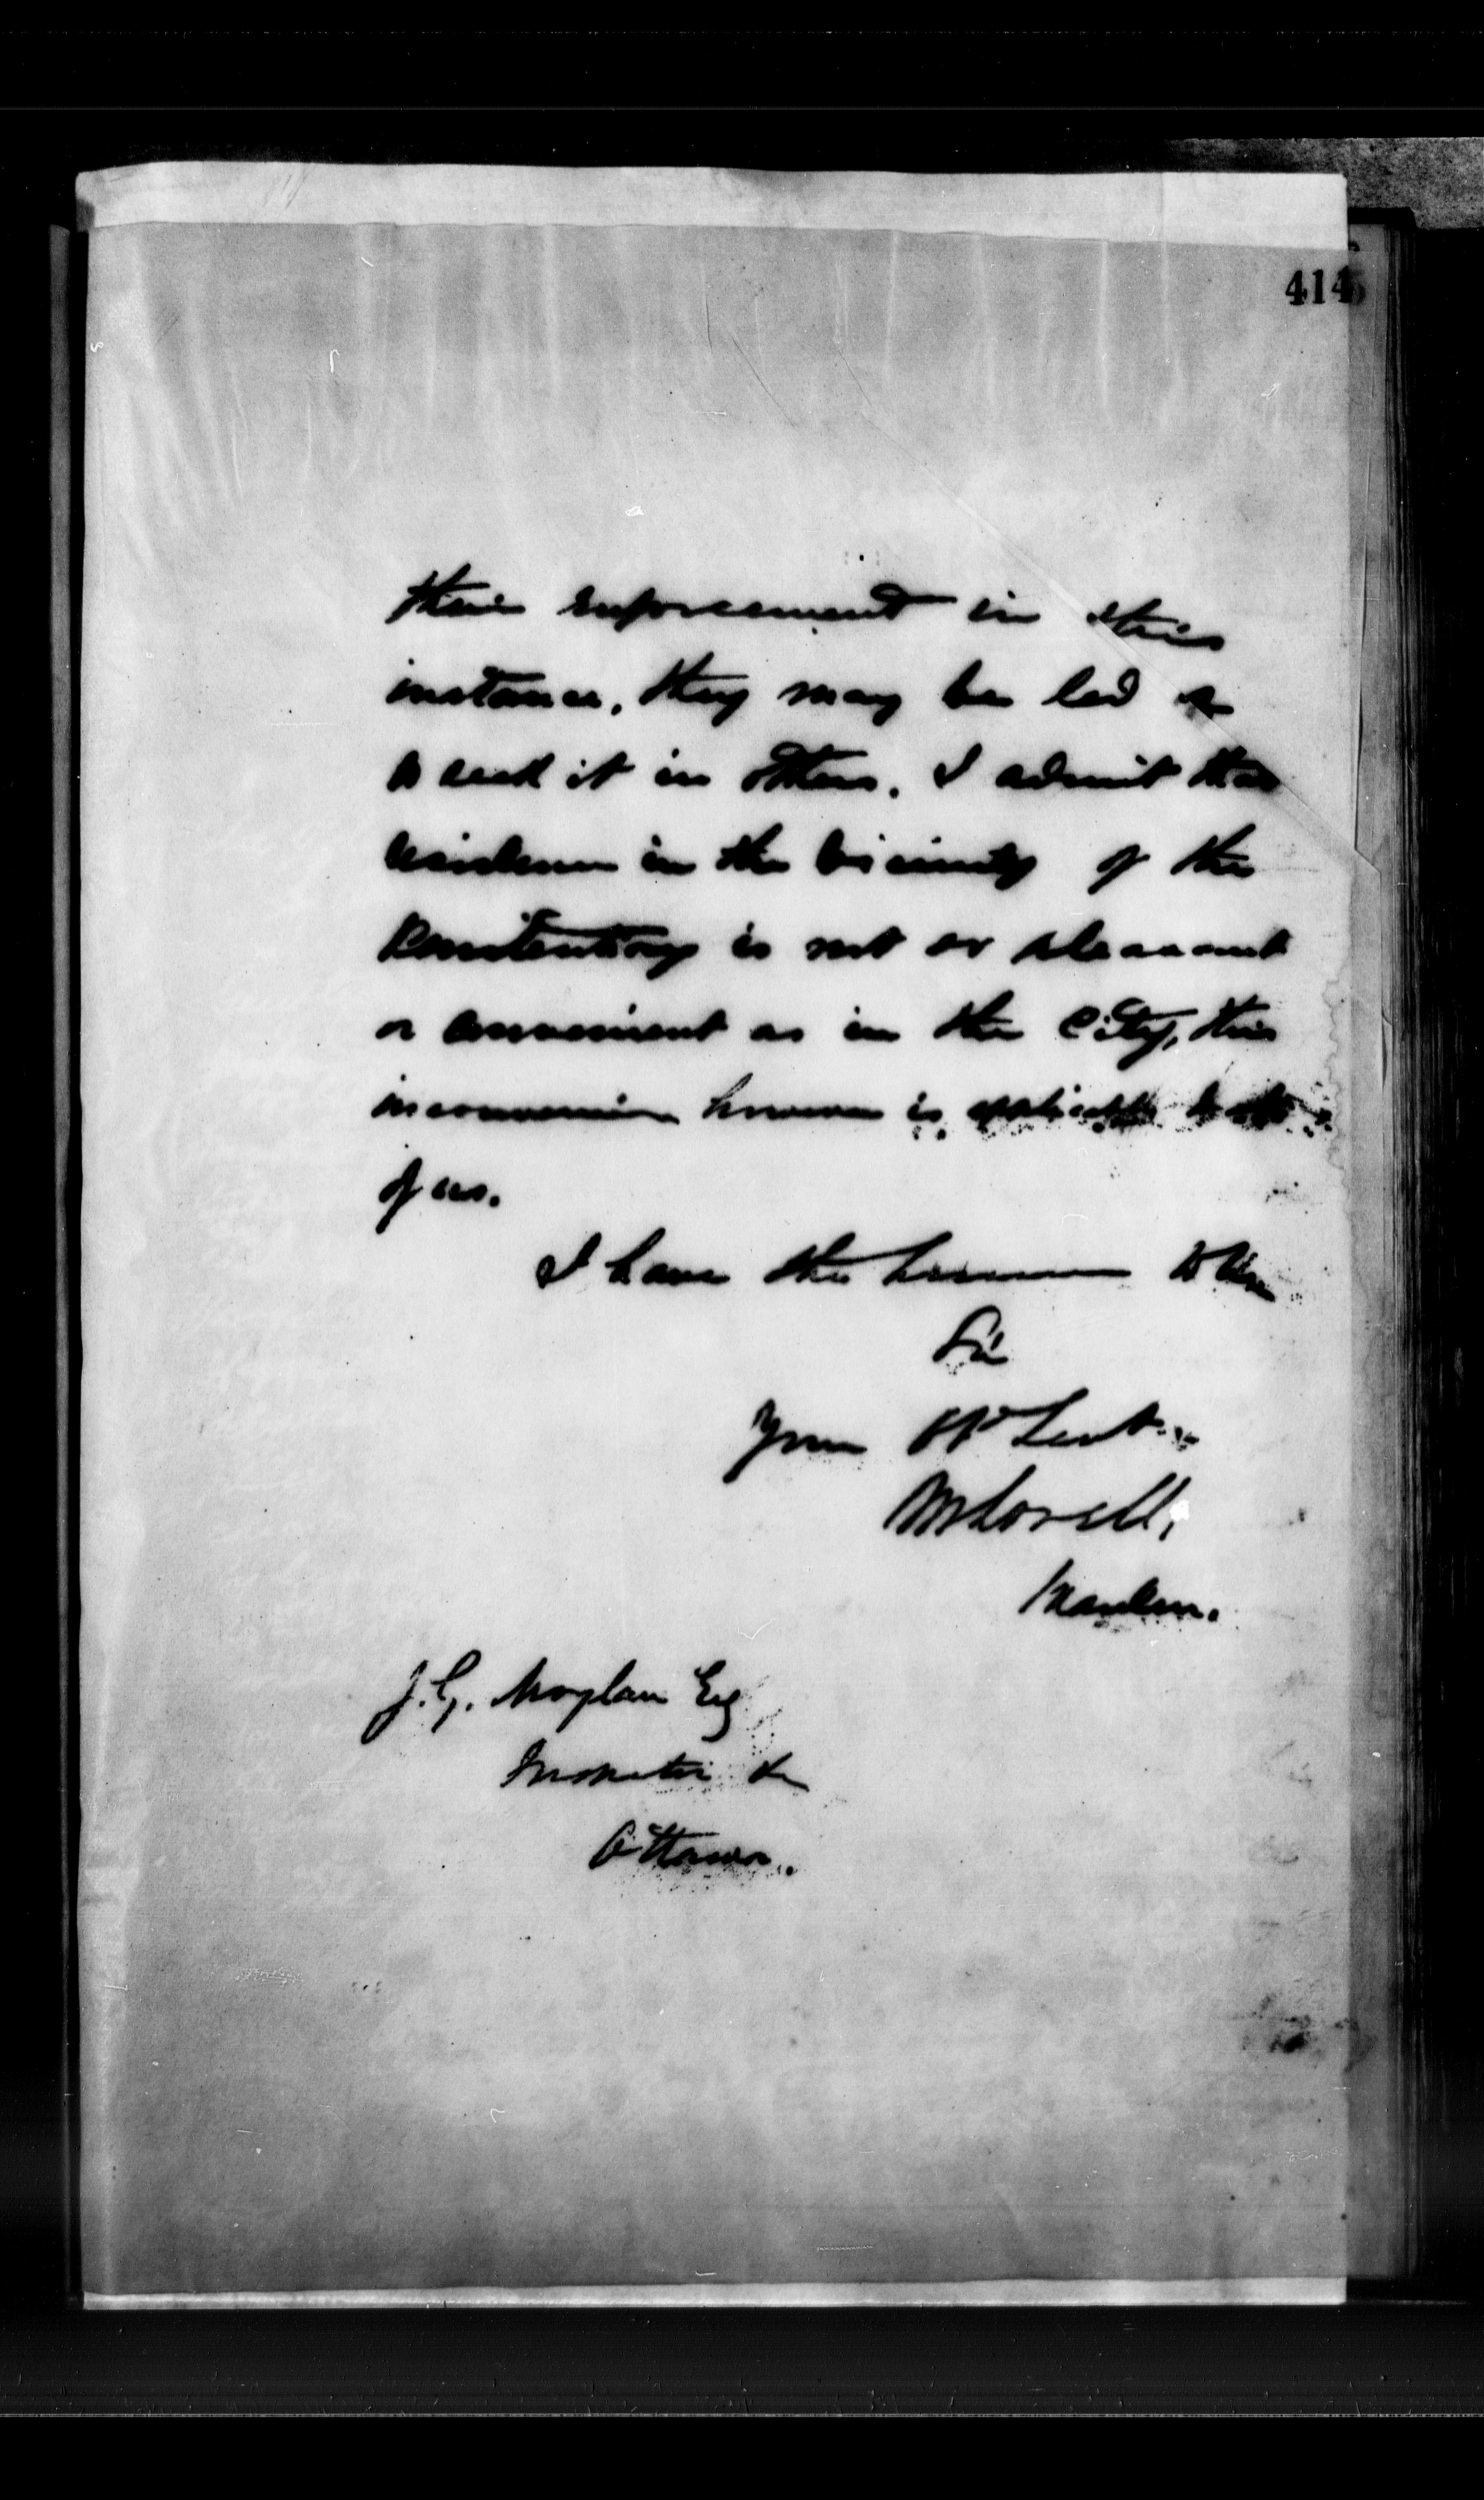 414
their enforcement in this
instance, they may be led
to seek it in others. I admit that
residence in the vicinity of the
Penitentiary is not so pleasant
or convenient as in the City, this
inconvenience however is applicable to all
of us.
I have the honour to be
Sir
Your Ob Servt
M Lavell,
Warden.
J. G. Moylan Esq
Inspector &c
Ottawa.